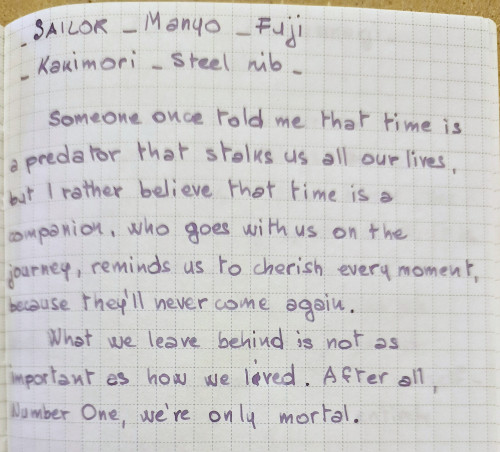 - SAILOR - Manyo - Fuji
- Kakimori - Steel nib -
Someone once told me that time is
a predator that stalks us all our lives,
but I rather believe that time is a
companion, who goes with us on the
journey, reminds us to cherish every moment,
because they'll never come again.
What we leave behind is not as
important as how we lived. After all,
Number One, we're only mortal.